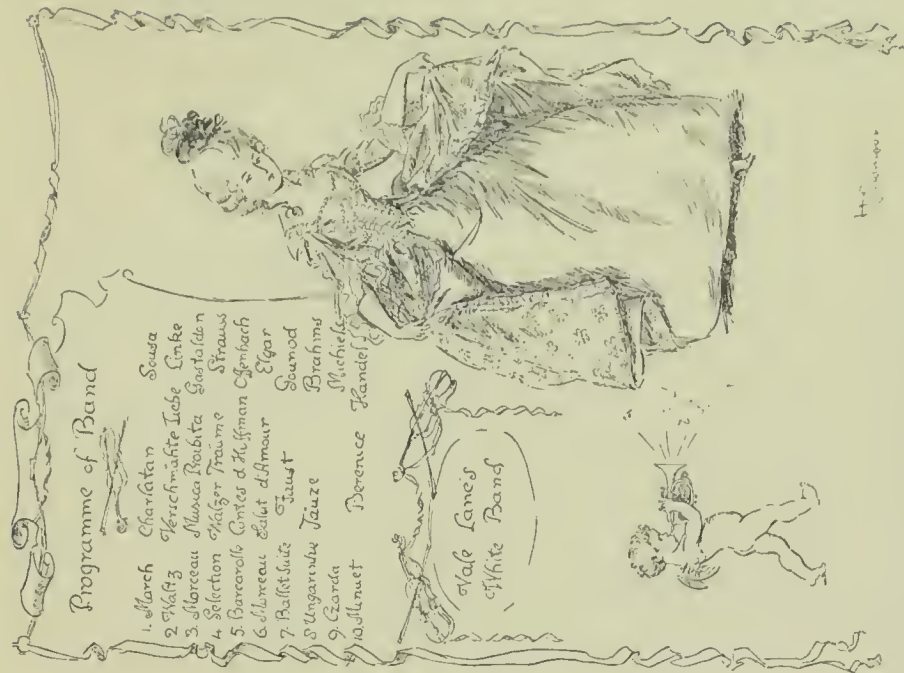 Programme of Band
1. March Charlatan Sousa
2 Waltz Verschmähte Liebe Linke
3. Morceau Musica Proibita Gastaldon
4 Selection Walzer Träume Straus
5. Barcarolle Contes d Hoffman Offenbach
6. Morceau Salut d'Amour Elgar
7. Ballet Suite Faust Gounod
8 Ungarische Tänze Brahms
9. Czarda Michiels
10. Minuet Berenice Handel
Vale Lane's
White Band